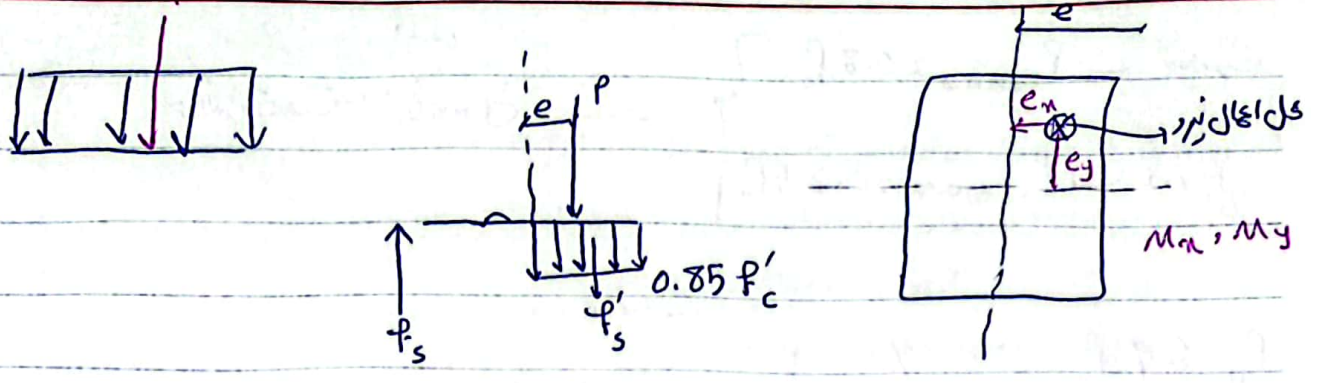 e
P
e
0.85 f'c
f's
fs
ex
محل اعمال نیرو
ey
Mx , My